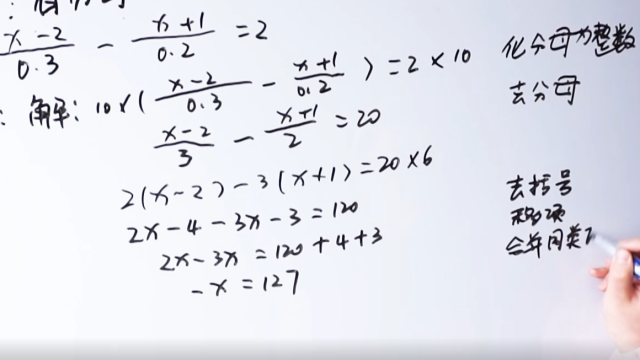 (x-2)/0.3 - (x+1)/0.2 = 2
化分母为整数
解: 10×( (x-2)/0.3 - (x+1)/0.2 ) = 2×10
去分母
(x-2)/3 - (x+1)/2 = 20
2(x-2)-3(x+1)=20×6
去括号
2x-4-3x-3=120
移项
2x-3x=120+4+3
合并同类
-x=127